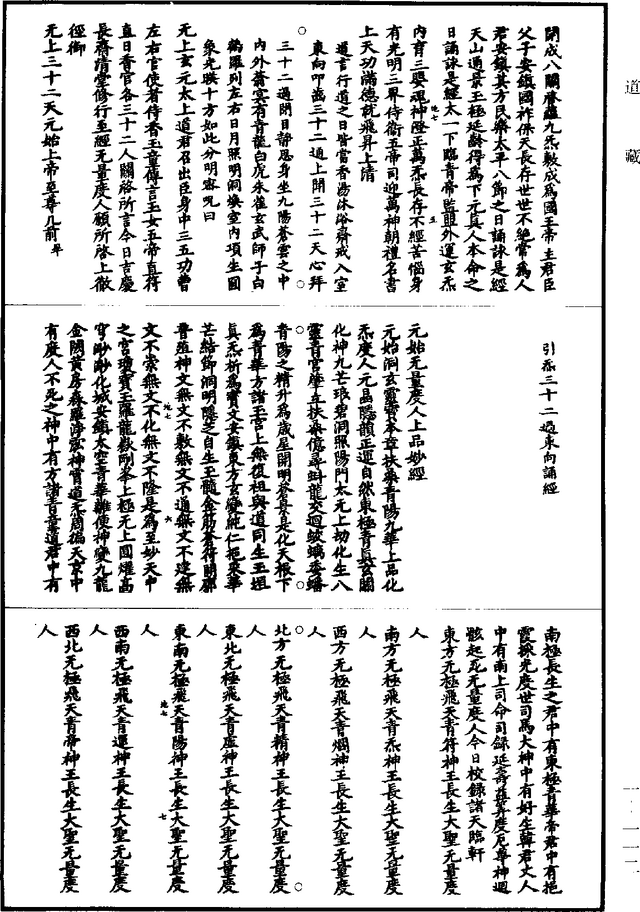 道藏
開成八關啓蘿九炁敷成為國王帝主君臣
父子安鎮國祚保天長存世世不絕常為人
君安鎮其方民樂太平八節之日誦詠是經
天仙遁景玉極延齡得為下元真人本命之
日誦詠是經太一下臨青帝監龍外運玄炁
內育三嬰魂神澄正萬炁長存不經苦惱身
有光明三界侍衛五帝司迎萬神朝禮名書
上天功滿德就飛昇上清
道言行道之日皆當香湯沐浴齋戒入室
東向叩齒三十二通上聞三十二天心拜
三十二過閉目靜思身坐九陽蒼雲之中
內外蓊冥有青龍白虎朱雀玄武師子白
鶴羅列左右日月照明洞煥室內項生圓
象光暎十方如此分明密呪曰
无上玄元太上道君召出臣身中三五功曹
左右官使者侍香玉童傳言玉女五帝直符
直日香官各三十二人關啓所言今日吉慶
長齋清堂修行至經无量度人願所啓上徹
徑御
无上三十二天元始上帝至尊几前
引炁三十二過東向誦經
元始无量度人上品妙經
元始洞玄靈寶本章扶桑青陽九華上品化
炁度人元晶隱韻正運自然東極青真玄關
化神九芒琅碧洞照陽門太元上劫化生八
靈青宮肇立扶桑億尋蚪龍交迴蛟螭委蟠
青陽之精升為歲星開明蒼真是化天根下
為青華方諸玉宮上無復祖與道同生玉垣
真炁析為寶文安鎮東方玄變純仁拖束華
芒結鄉洞明隱芝自生玉髓金筋蒼符開廓
普殖神文無文不敷無文不道無文不達無
文不崇無文不化無文不隆是為至妙天中
之宮瓊寶玉羅龍嶽剛峯上極无上圓燿高
穹眇眇化城安鎮太空青華離便神變九龍
金闕黃房森羅淨宏神霄道炁周徧天京中
有度人不死之神中有方諸青童道君中有
南極長生之君中有東極青華帝君中有挹
霞採光度世司馬大神中有好生韓君丈人
中有南上司命司錄延壽益筭度厄尊神迴
骸起死无量度人今日校錄諸天臨軒
東方无極飛天青符神王長生大聖无量度
人
南方无極飛天青炁神王長生大聖无量度
人
西方无極飛天青爛神王長生大聖无量度
人
北方无極飛天青精神王長生大聖无量度
人
東北无極飛天青虛神王長生大聖无量度
人
東南无極飛天青陽神王長生大聖无量度
人
西南无極飛天青運神王長生大聖无量度
人
西北无極飛天青帝神王長生大聖无量度
人